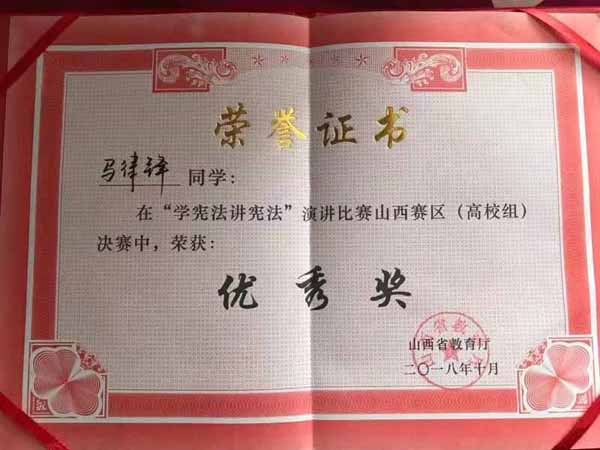 荣誉证书
马律锋 同学：
在“学宪法讲宪法”演讲比赛山西赛区（高校组）
决赛中，荣获：
优秀奖
山西省教育厅
二〇一八年十月